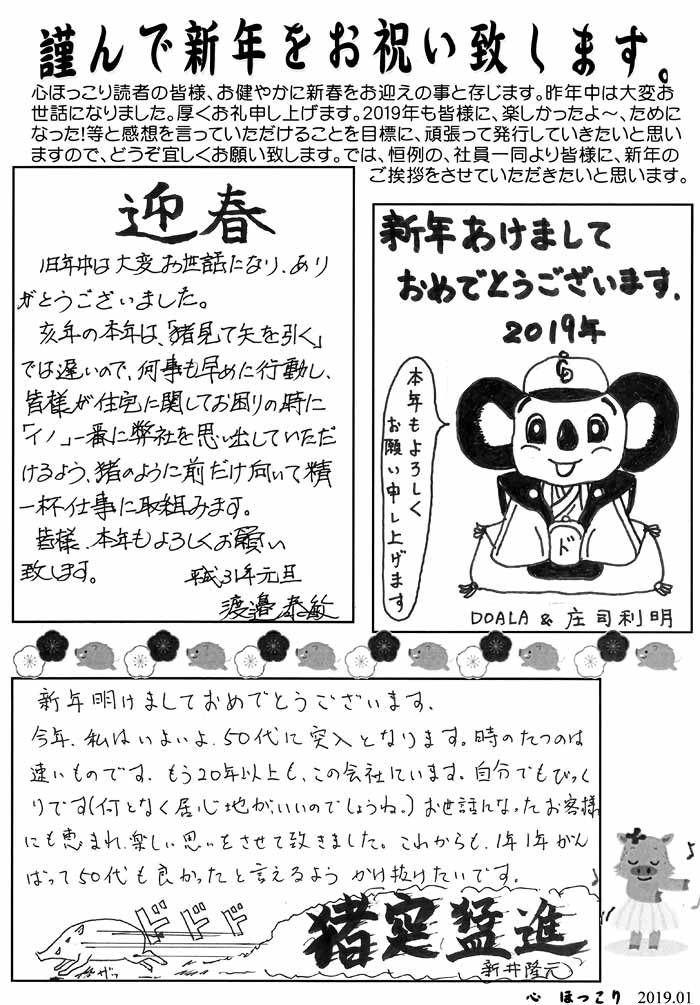 謹んで新年をお祝い致します。
心ほっこり読者の皆様、お健やかに新春をお迎えの事と存じます。昨年中は大変お
世話になりました。厚くお礼申し上げます。2019年も皆様に、楽しかったよ〜、ために
なった!等と感想を言っていただけることを目標に、頑張って発行していきたいと思い
ますので、どうぞ宜しくお願い致します。では、恒例の、社員一同より皆様に、新年の
ご挨拶をさせていただきたいと思います。
迎春
旧年中は大変お世話になり、あり
がとうございました。
亥年の本年は、「猪見て矢を引く」
では遅いので、何事も早めに行動し、
皆様が住宅に関してお困りの時に
「イノ」一番に弊社を思い出していただ
けるよう、猪のように前だけ向いて精
一杯仕事に取組みます。
皆様、本年もよろしくお願い
致します。
平成31年元旦
渡邉泰敏
新年あけまして
おめでとうございます.
2019年
本年もよろしく
お願い申し上げます
CD
ド
DOALA & 庄司利明
新年明けましておめでとうございます.
今年、私はいよいよ、50代に突入となります。時のたつのは
速いものです. もう20年以上も、この会社にいます。自分でもびっく
りです(何となく居心地がいいのでしょうね。) お世話になったお客様
にも恵まれ、楽しい思いをさせて致きました。これからも、1年1年がん
ばって50代も良かったと言えるよう かけ抜けたいです.
ドドド
猪突猛進
新井隆元
心 ほっこり 2019.01